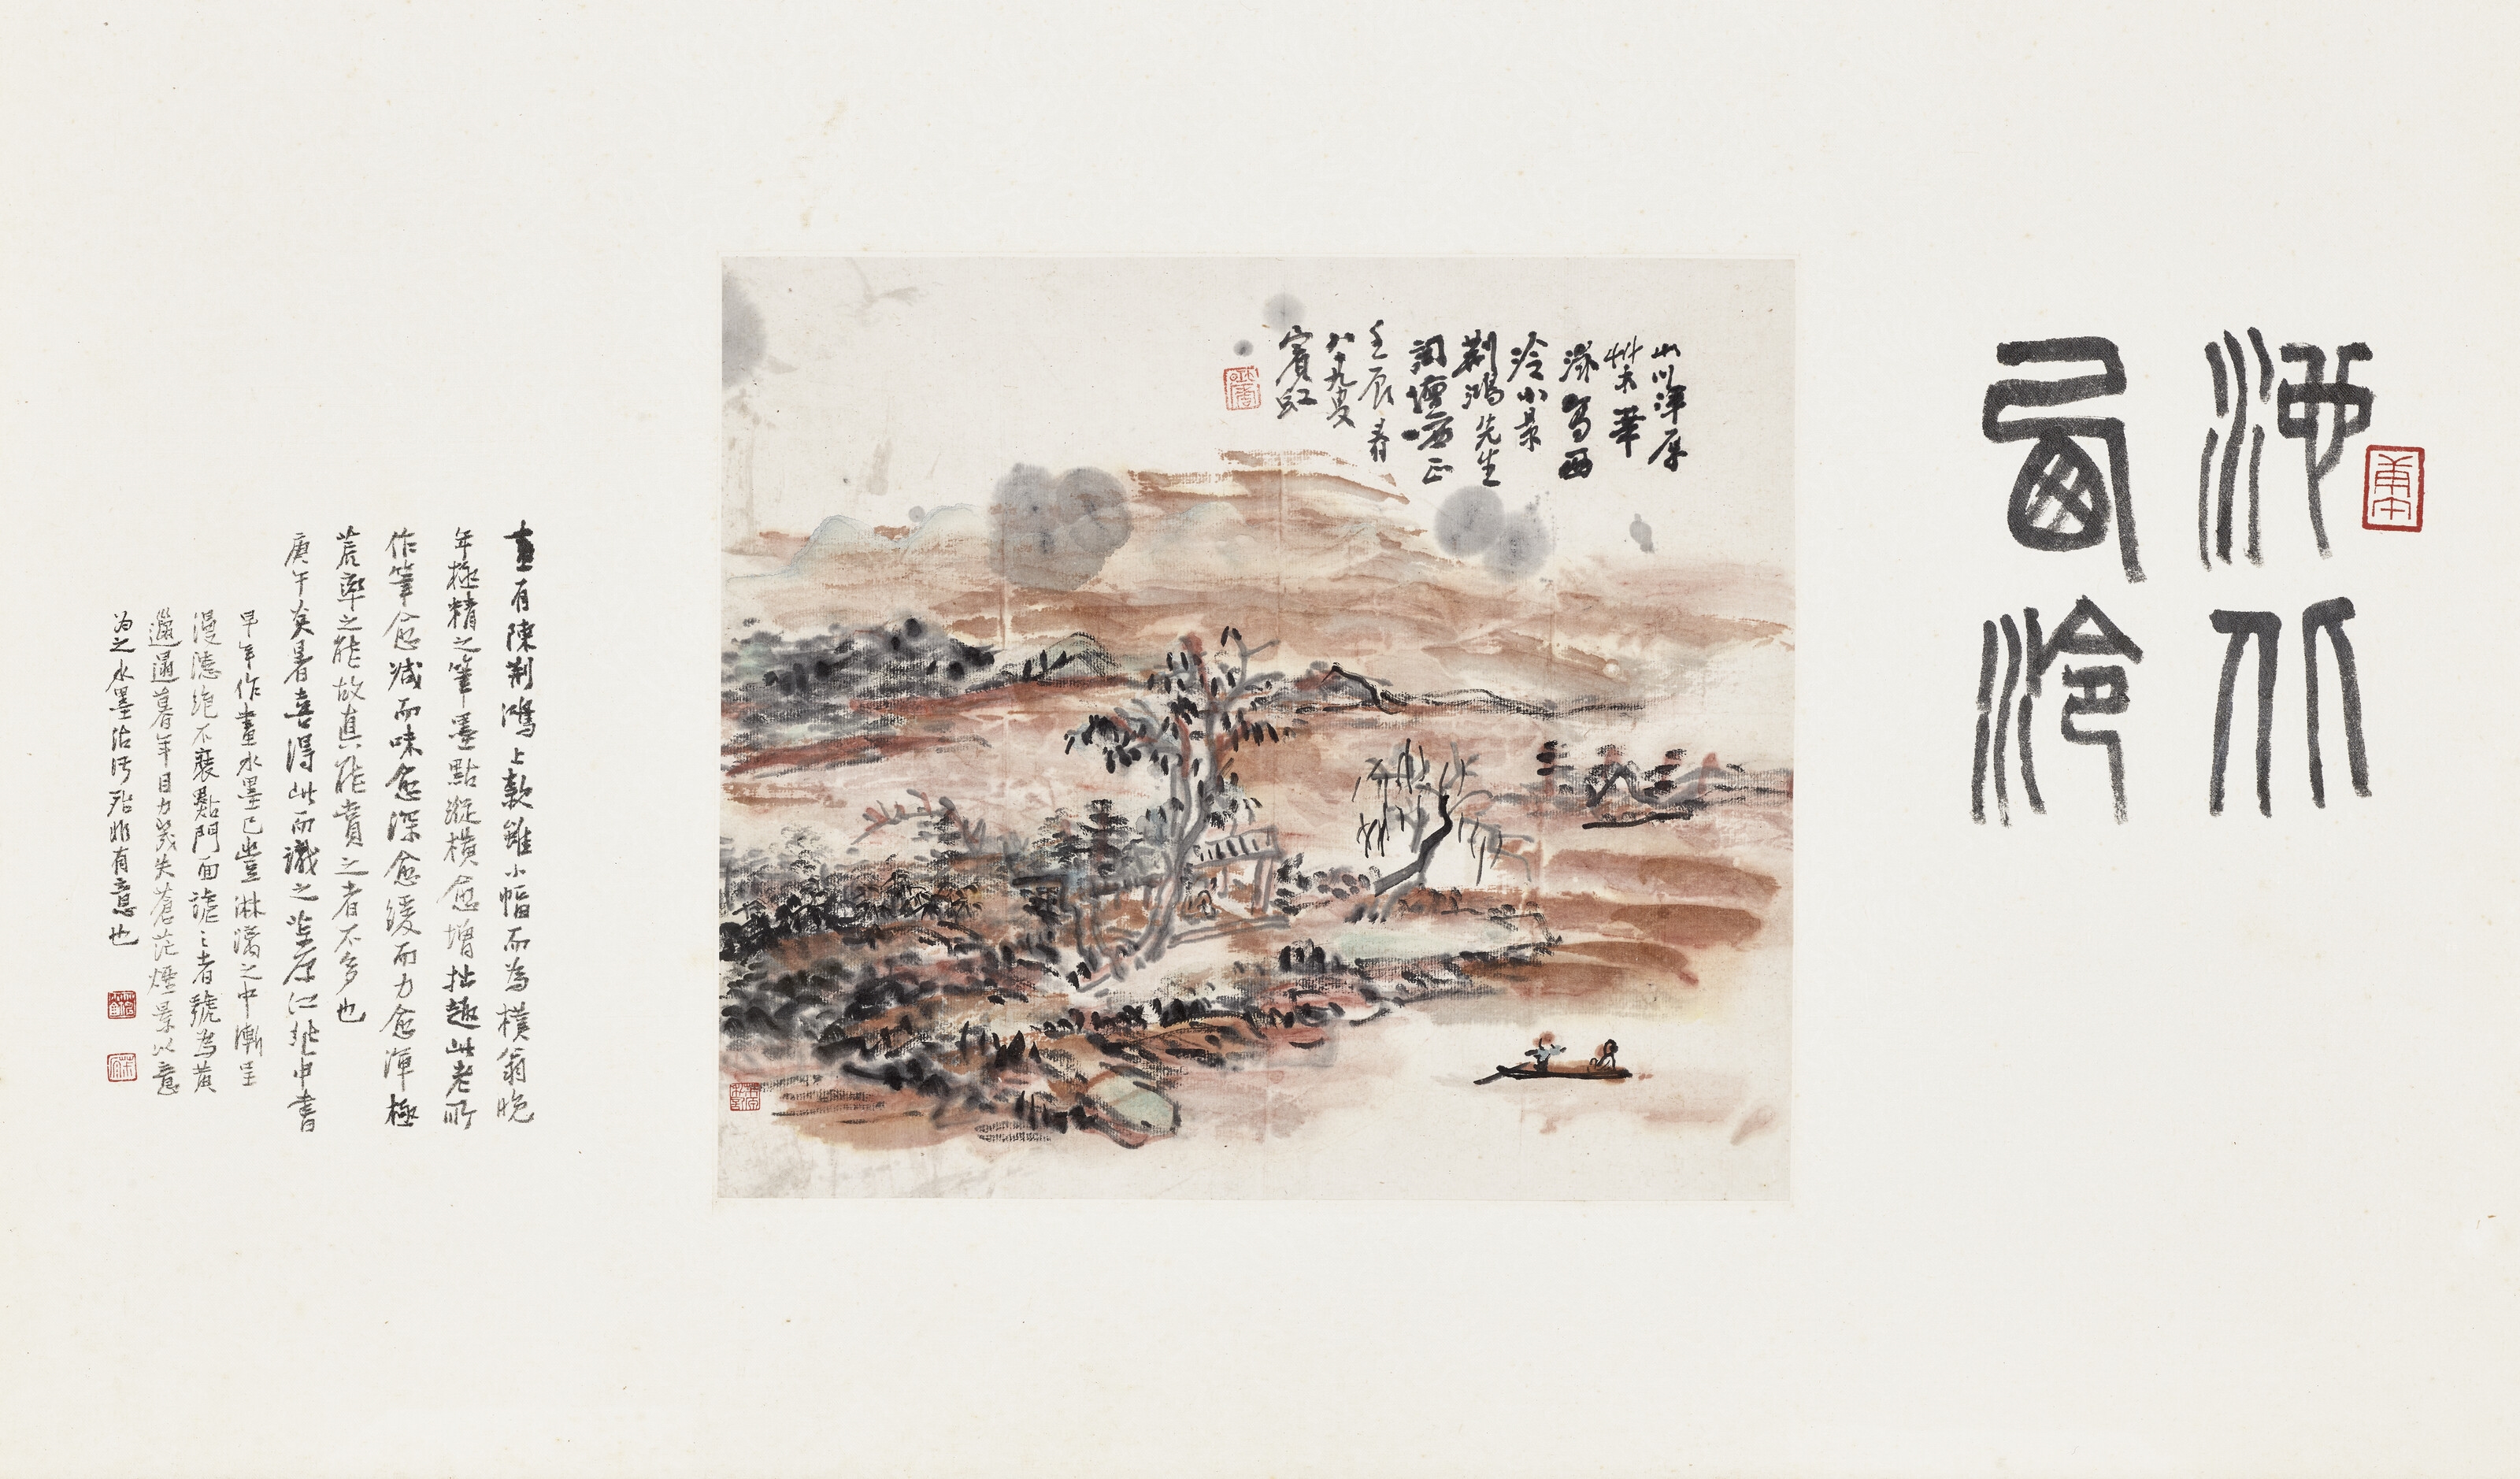 西泠
山川渾厚
艸木華
滋寫西
泠小景
荊鴻先生
詞壇哂正
壬辰春
八十九叟
賓虹
畫有陳荊鴻上款雖小幅而為樸翁晚
年極精之筆墨點縱橫愈增拙趣此老所
作筆愈減而味愈深愈緩而力愈渾極
荒率之能故真能賞之者不多也
庚午炎暑喜得此而識之茮原江兆申書
早年作畫水墨已豐淋漓之中漸呈
漫漶絕不裝點門面詭之者號為黃
邋遢暮年目力幾失蒼茫煙景以意
為之水墨沾污殆非有意也